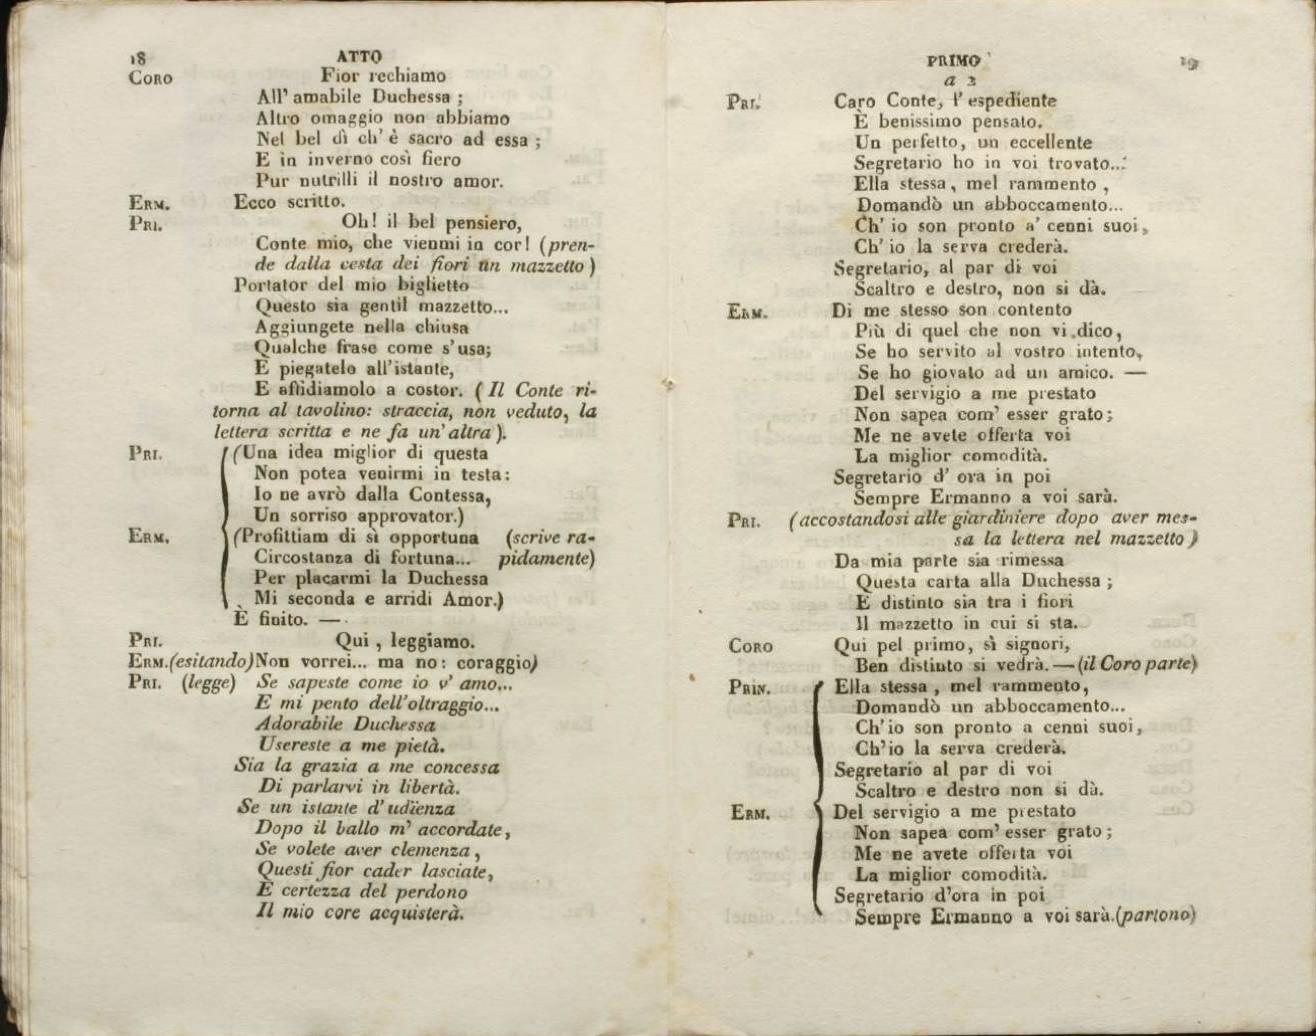 18 ATTO
CORO Fior rechiamo
All' amabile Duchessa ;
Altro omaggio non abbiamo
Nel bel dì ch' è sacro ad essa ;
E in inverno così fiero
Pur nutrilli il nostro amor.
ERM. Ecco scritto.
PRI. Oh! il bel pensiero,
Conte mio, che vienmi in cor! (pren-
de dalla cesta dei fiori un mazzetto)
Portator del mio biglietto
Questo sia gentil mazzetto...
Aggiungete nella chiusa
Qualche frase come s'usa;
E piegatelo all'istante,
E affidiamolo a costor. (Il Conte ri-
torna al tavolino: straccia, non veduto, la
lettera scritta e ne fa un'altra).
PRI. (Una idea miglior di questa
Non potea venirmi in testa:
Io ne avrò dalla Contessa,
Un sorriso approvator.)
ERM. (Profittiam di sì opportuna (scrive ra-
Circostanza di fortuna... pidamente)
Per placarmi la Duchessa
Mi seconda e arridi Amor.)
È finito. —
PRI. Qui, leggiamo.
ERM. (esitando) Non vorrei... ma no: coraggio)
PRI. (legge) Se sapeste come io v' amo...
E mi pento dell'oltraggio...
Adorabile Duchessa
Usereste a me pietà.
Sia la grazia a me concessa
Di parlarvi in libertà.
Se un istante d'udienza
Dopo il ballo m' accordate,
Se volete aver clemenza,
Questi fior cader lasciate,
E certezza del perdono
Il mio core acquisterà.
PRIMO 19
a 2
PRI. Caro Conte, l' espediente
È benissimo pensato.
Un perfetto, un eccellente
Segretario ho in voi trovato...
Ella stessa, mel rammento,
Domandò un abboccamento...
Ch' io son pronto a' cenni suoi,
Ch' io la serva crederà.
Segretario, al par di voi
Scaltro e destro, non si dà.
ERM. Di me stesso son contento
Più di quel che non vi dico,
Se ho servito al vostro intento,
Se ho giovato ad un amico. —
Del servigio a me prestato
Non sapea com' esser grato;
Me ne avete offerta voi
La miglior comodità.
Segretario d' ora in poi
Sempre Ermanno a voi sarà.
PRI. (accostandosi alle giardiniere dopo aver mes-
sa la lettera nel mazzetto)
Da mia parte sia rimessa
Questa carta alla Duchessa ;
E distinto sia tra i fiori
Il mazzetto in cui si sta.
CORO Qui pel primo, sì signori,
Ben distinto si vedrà. — (il Coro parte)
PRIN. Ella stessa, mel rammento,
Domandò un abboccamento...
Ch'io son pronto a cenni suoi,
Ch'io la serva crederà.
Segretario al par di voi
Scaltro e destro non si dà.
ERM. Del servigio a me prestato
Non sapea com' esser grato;
Me ne avete offerta voi
La miglior comodità.
Segretario d'ora in poi
Sempre Ermanno a voi sarà. (partono)